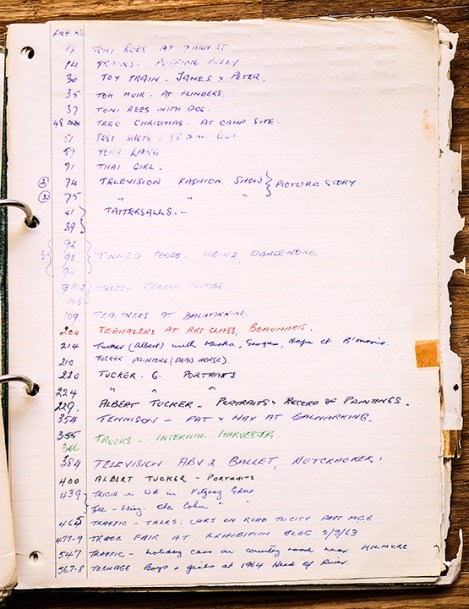 FILE No
9 TONI REES AT
14 TRAINS - PUFFING BILLY.
30 TOY TRAIN - JAMES & PETER.
35 TOM MUIR. AT FLINDERS.
37 TONI REES WITH DOG.
48 TREE CHRISTMAS. AT CAMP SITE.
51 TEST SHOTS - 35 m.m.
59 TONY LANG
71 THAI GIRL.
② 74 TELEVISION FASHION SHOW } PICTURE STORY
② 75 " " "
81 TATTERSALLS. -
89
92
93 TINNED FOODS. HEINZ, DANDENONG.
94
103
109 TEA TREES AT BALNARRING
204 TEENAGERS AT ART CLASS, BEAUMARIS.
214 Tucker (Albert) with Hope at B'maris.
210 TUCKER PAINTING (DEAD HORSE).
220 TUCKER. G. PORTRAITS
224 " " "
229. ALBERT TUCKER - PORTRAITS & RECORD OF PAINTINGS.
354 TENNISON - PAT & MAX AT BALNARRING.
355 TRUCKS - INTERNAL HARVESTER
366
384 TELEVISION ABV 2 BALLET, NUTCRACKER.
400 ALBERT TUCKER - PORTRAITS
439 TRICIA in Fitzroy Gdns
" "
465 TRAFFIC - TALES: CARS ON ROAD TO CITY PAST MCG
477-9 TRADE FAIR AT EXHIBITION BLDG 2/3/63
547 TRAFFIC - holiday cars on country road near KILMORE
567-8 TEENAGE Boys & girls at 1964 Head of River.